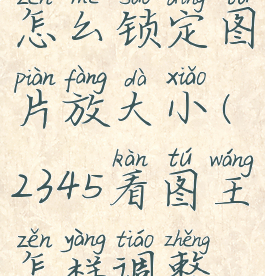 zěn me suǒ dìng tú
怎么锁定图
piàn fàng dà xiǎo
片放大小(
kàn tú wáng
2345看图王
zěn yàng tiáo zhěng
怎样调整